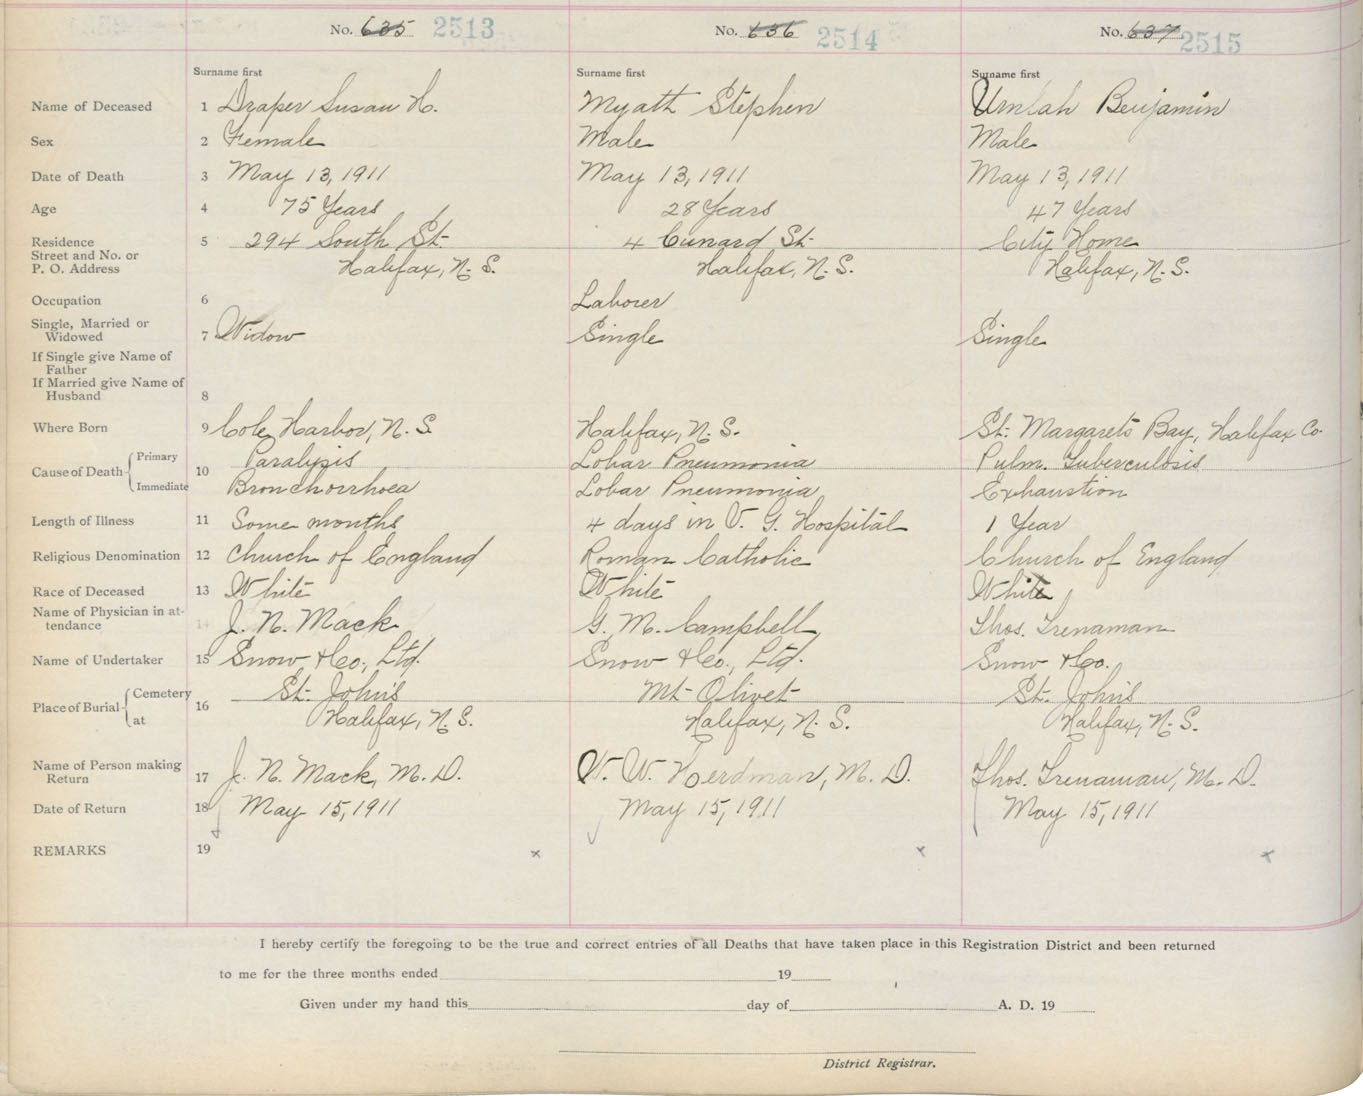 No. 635 2513 No. 636 2514 No. 637 2515
Surname first Surname first Surname first
Name of Deceased 1 Draper Susan H. Myatt Stephen Umlah Benjamin
Sex 2 Female Male Male
Date of Death 3 May 13, 1911 May 13, 1911 May 13, 1911
Age 4 75 Years 28 Years 47 Years
Residence 5 294 South St. 4 Cunard St. City Home
Street and No. or
P. O. Address Halifax, N. S. Halifax, N. S. Halifax, N. S.
Occupation 6 Laborer
Single, Married or
Widowed 7 Widow Single Single
If Single give Name of
Father
If Married give Name of
Husband 8
Where Born 9 Cole Harbor, N. S. Halifax, N. S. St. Margarets Bay, Halifax Co.
Cause of Death Primary 10 Paralysis Lobar Pneumonia Pulm. Tuberculosis
Immediate Bronchorrhoea Lobar Pneumonia Exhaustion
Length of Illness 11 Some months 4 days in V. G. Hospital 1 Year
Religious Denomination 12 Church of England Roman Catholic Church of England
Race of Deceased 13 White White White
Name of Physician in at-
tendance 14 J. N. Mack G. M. Campbell Thos. Trenaman
Name of Undertaker 15 Snow & Co., Ltd. Snow & Co., Ltd. Snow & Co.
Place of Burial Cemetery 16 St. John's Mt. Olivet St. John's
at Halifax, N. S. Halifax, N. S. Halifax, N. S.
Name of Person making
Return 17 J. N. Mack, M. D. W. W. M. D. Thos. Trenaman, M. D.
Date of Return 18 May 15, 1911 May 15, 1911 May 15, 1911
REMARKS 19 x x x
I hereby certify the foregoing to be the true and correct entries of all Deaths that have taken place in this Registration District and been returned
to me for the three months ended 19
Given under my hand this day of A. D. 19
District Registrar.